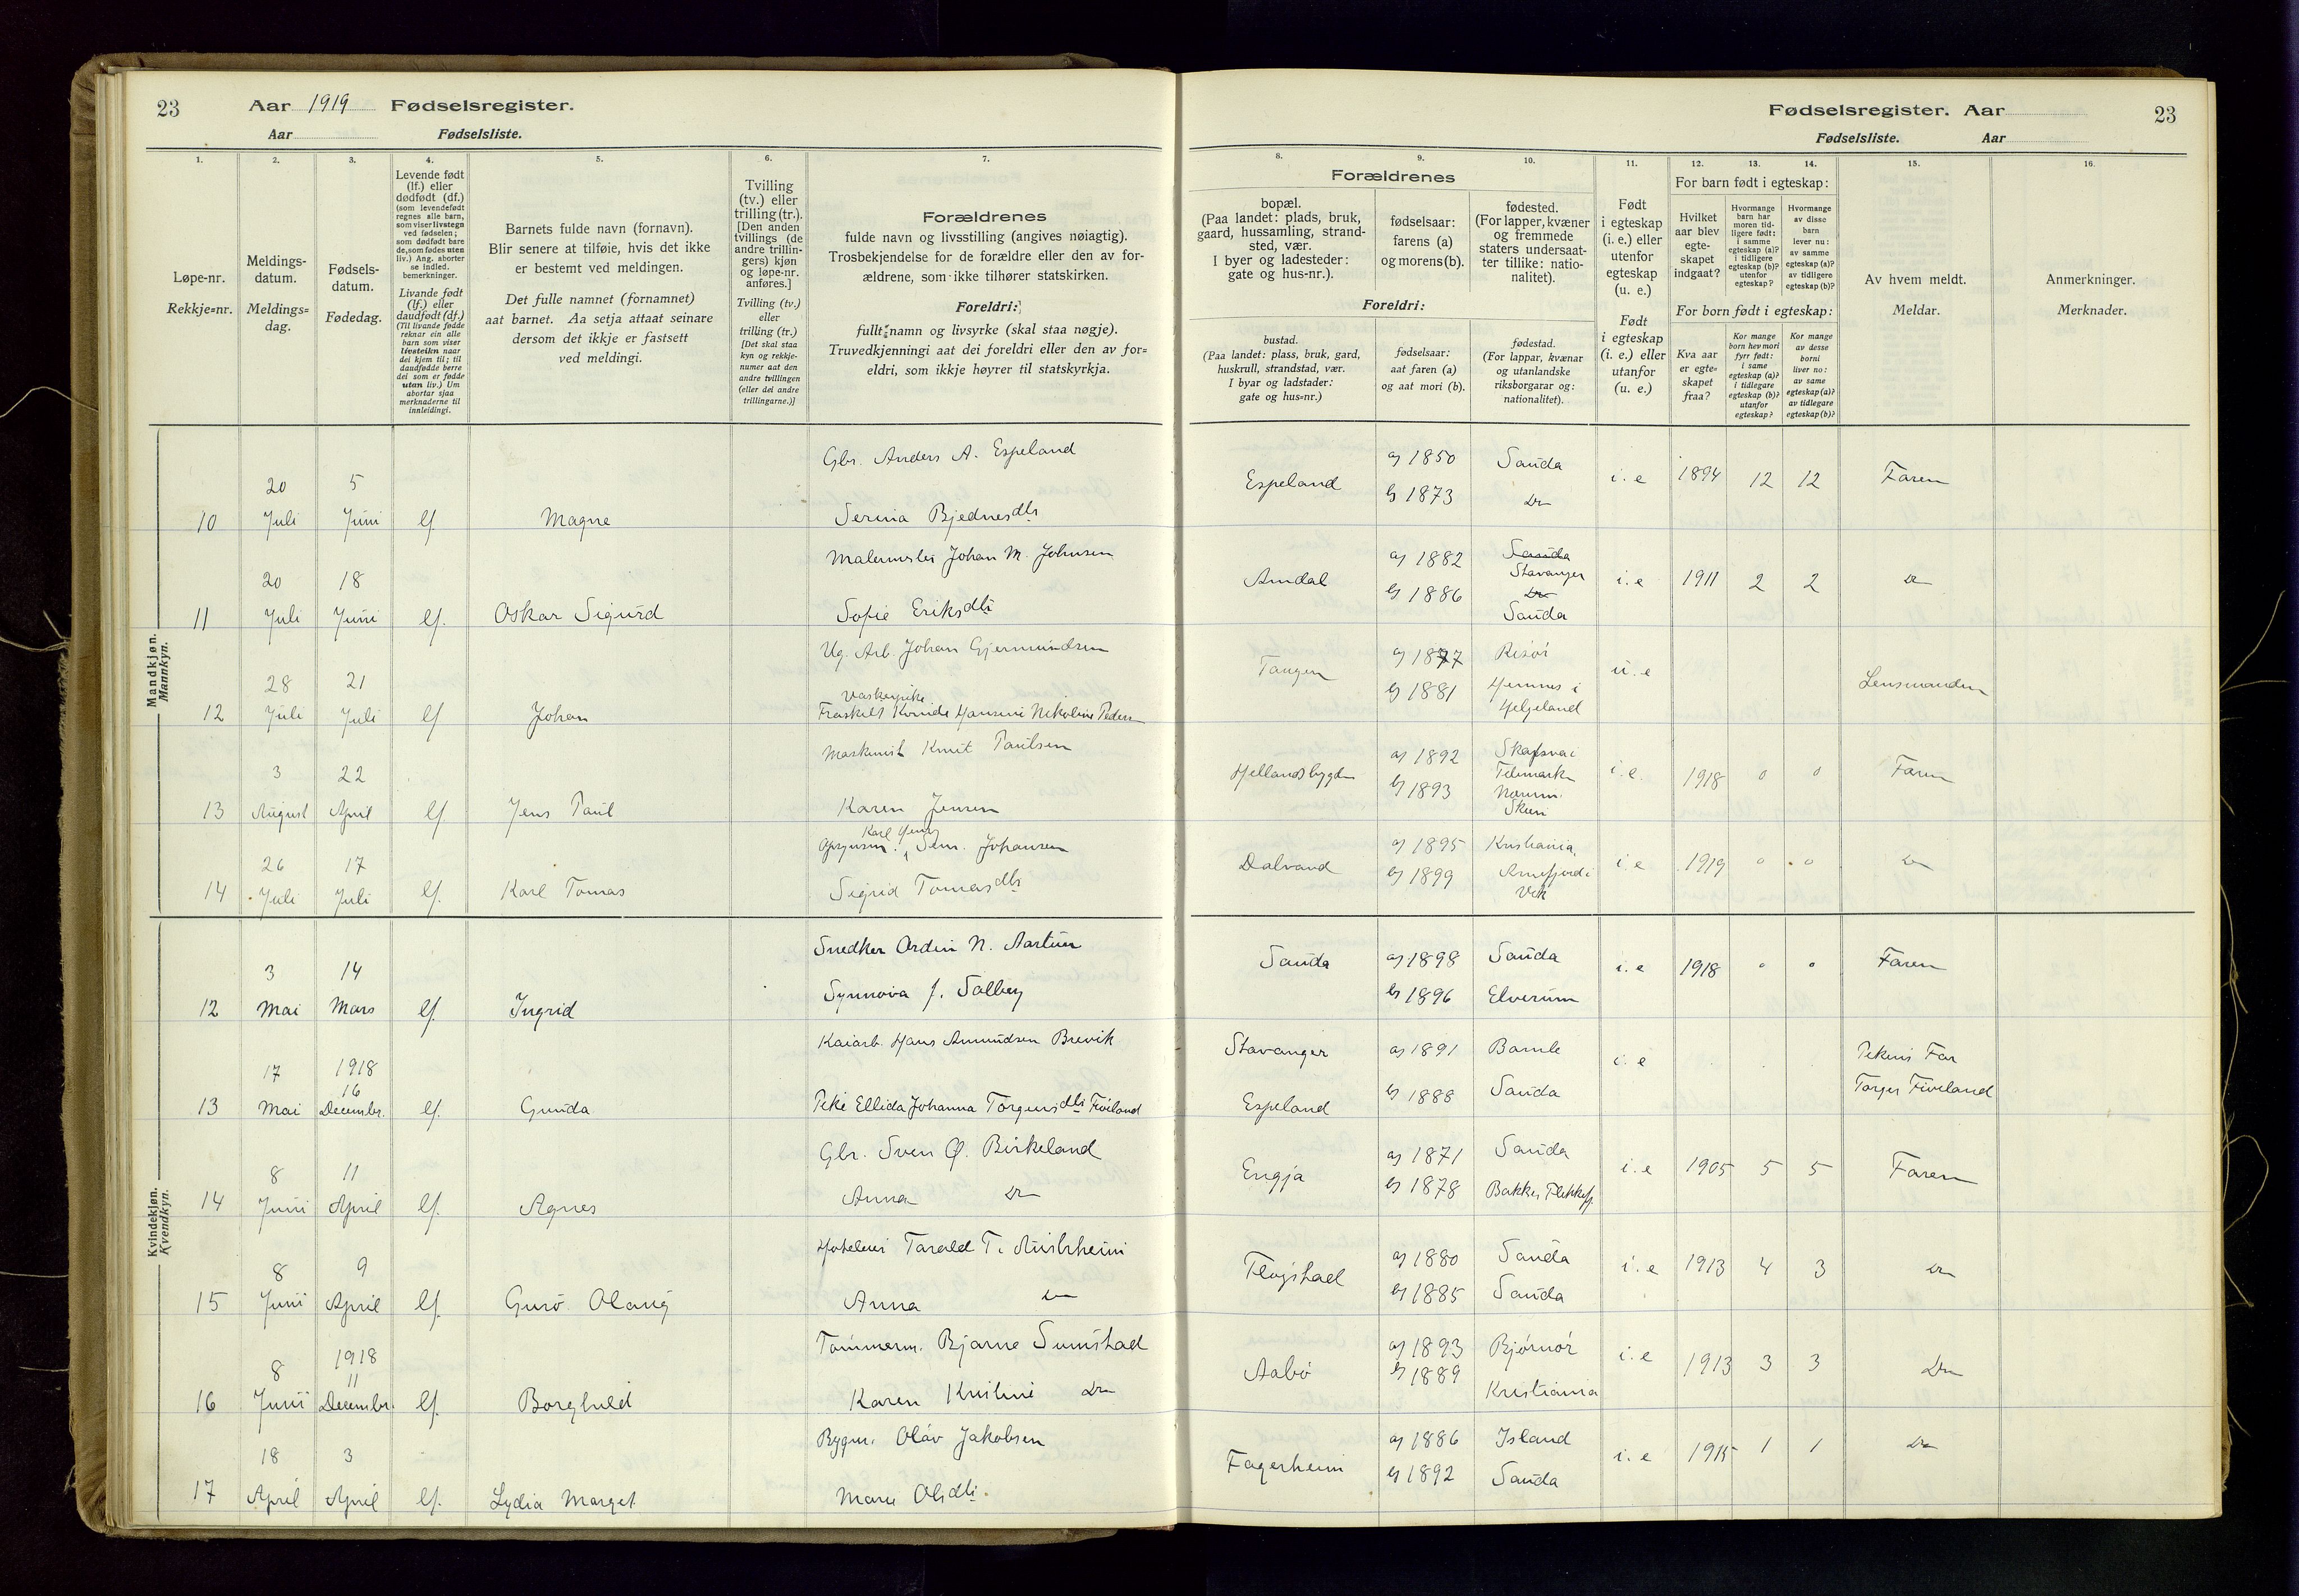 23
Aar 1919 Fødselsregister.
Aar Fødselsliste.
Fødselsregister. Aar
23
Fødselsliste. Aar
1.
Løpe-nr.
Rekkje=nr.
2.
Meldings-
datum.
Meldings=
dag.
3.
Fødsels-
datum.
Fødedag.
4.
Levende født
(lf.) eller
dødfødt (df.)
(som levendefødt
regnes alle barn,
som viser livstegn
ved fødselen;
som dødfødt bare
de, som fødes uten
liv.) Ang. aborter
se indled.
bemerkninger.
Livande født
(lf.) eller
daudfødt (df.)
(Til livande fødde
reknar ein alle
barn som viser
livsteikn naar
dei kjem til; til
daudfødde berre
dei som er fødde
utan liv.) Um
abortar sjaa
merknaderne til
innleidingi.
5.
Barnets fulde navn (fornavn).
Blir senere at tilføie, hvis det ikke
er bestemt ved meldingen.
Det fulle namnet (fornamnet)
aat barnet. Aa setja attaat seinare
dersom det ikkje er fastsett
ved meldingi.
6.
Tvilling
(tv.) eller
trilling (tr.).
[Den anden
tvillings (de
andre trillin-
gers) kjøn
og løpe-nr.
anføres.]
Tvilling (tv.)
eller
trilling (tr.)
[Det skal staa
kyn og rekkje-
numer aat den
andre tvillingen
(eller dei andre
trillingarne.)]
7.
Forældrenes
fulde navn og livsstilling (angives nøiagtig).
Trosbekjendelse for de forældre eller den av for-
ældrene, som ikke tilhører statskirken.
Foreldri:
fullt namn og livsyrke (skal staa nøgje).
Truvedkjenningi aat dei foreldri eller den av for=
eldri, som ikkje høyrer til statskyrkja.
8.
Forældrenes
bopæl.
(Paa landet: plads, bruk,
gaard, hussamling, strand-
sted, vær.
I byer og ladesteder:
gate og hus-nr.).
Foreldri:
bustad.
(Paa landet: plass, bruk, gard,
huskrull, strandstad, vær.
I byar og ladstader:
gate og hus=nr.)
9.
fødselsaar:
farens (a)
og morens (b).
fødselsaar:
aat faren (a)
og aat mori (b).
10.
fødested.
(For lapper, kvæner
og fremmede
staters undersaat-
ter tillike: natio-
nalitet).
fødestad.
(For lappar, kvænar
og utanlandske
riksborgarar og:
nationalitet).
11.
Født
i egteskap
(i. e.) eller
utenfor
egteskap
(u. e.)
Født
i egteskap
(i. e.) eller
utanfor
(u. e.)
12.
For barn født i egteskap:
Hvilket
aar blev
egte-
skapet
indgaat?
For born født i egteskap:
Kva aar
er egte=
skapet
fraa?
13.
Hvormange
barn har
moren tid-
ligere født:
i samme
egteskap (a)?
i tidligere
egteskap (b)?
utenfor
egteskap?
Kor mange
born hev mori
fyrr født:
i same
egteskap (a)?
i tidlegare
egteskap (b)?
utanfor
egteskap?
14.
Hvormange
av disse
barn
lever nu:
av samme
egteskap (a)?
av tidligere
egteskap (b)?
Kor mange
av desse
borni
liver no:
av same
egteskap (a)?
av tidlegare
egteskap (b)?
15.
Av hvem meldt.
Meldar.
16.
Anmerkninger.
Merknader.
Mandkjøn.
Mannkyn.
Gbr. Anders A. Espeland
10 20 Juli 5 Juni lf. Magne
Serina Bjednesdtr
Espeland a) 1850 Sauda i.e 1894 12 12 Faren
b) 1873 Do
Malermester Johan M. Johnsen
11 20 Juli 18 Juni lf. Oskar Sigurd
Sofie Eriksdtr
Amdal a) 1882 Sauda Stavanger i.e 1911 2 2 Do
b) 1886 Do Sauda
Ug. Arb. Johan Gjermundsen
12 28 Juli 21 Juli lf Johan
Vaskerpike
Fraskilt Kvinde Hansine Nikoline Peders
Tangen a) 1877 Risør u.e Lensmanden
b) 1881 Hemnes i Helgeland
Maskinist Knut Paulsen
13 3 August 22 April lf. Jens Paul
Karen Jensen
Hellandsbygden a) 1892 Skafsvæ i Telemarken i.e. 1918 0 0 Faren
b) 1893 Skien
Karl Henry
Johansen
14 26 Juli 17 Juli lf. Karl Tomas
Sigrid Tomasdtr
Dalvand a) 1895 Kristiania i.e 1919 0 0 Do
b) 1899 Arnefjord i Vik
Kvindekjøn.
Kvendkyn.
Snedker Ordin N. Aartun
12 3 Mai 14 Mars lf. Ingrid
Synnøva J. Solberg
Sauda a) 1898 Sauda i.e 1918 0 0 Faren
b) 1896 Elverum
Kaiarb. Hans Amundsen Brevik
13 17 Mai 1918 16 Decembr. lf. Gunda
Pike Ellida Johanna Torgersdtr Fiveland
Stavanger a) 1891 Bamle i.e Pikens Far
Espeland b) 1888 Sauda Torger Fiveland
Gbr. Sven Ø. Birkeland
14 8 Juni 11 April lf. Agnes
Anna Do
Engja a) 1871 Sauda i.e 1905 5 5 Faren
b) 1878 Bakke, Flekkefj.
Hoteleier Tarald T. Austrheim
15 8 Juni 9 April lf. Guro Olaug
Anna Do
Fløgstad a) 1880 Sauda i.e 1913 4 3 Do
b) 1885 Sauda
Tømmerm. Bjarne Sumstad
16 8 Juni 1918 11 Decembr. lf. Borghild
Karen Kristine Do
Aabø a) 1893 Bjørnør i.e 1913 3 3 Do
b) 1889 Kristiania
Bygm. Olav Jakobsen
17 18 April 3 April lf. Lydia Marget
Marie Olsdtr.
Fagerheim a) 1886 Island i.e 1915 1 1 Do
b) 1892 Sauda